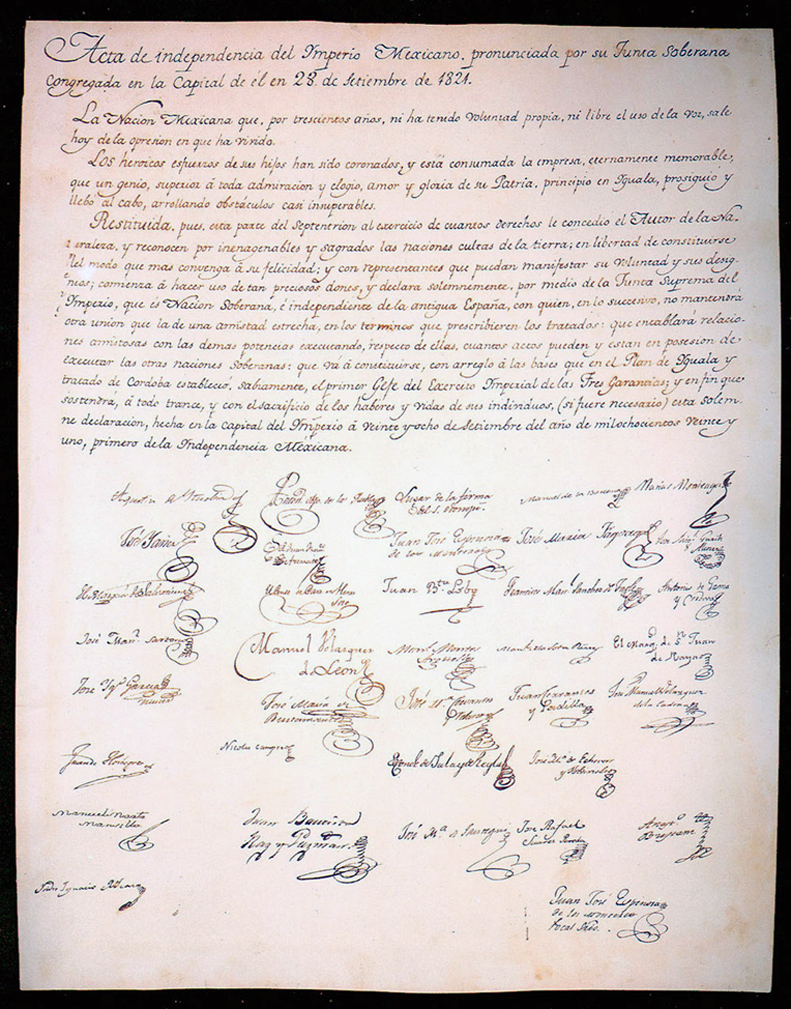 Acta de independencia del Ymperio Mexicano, pronunciada por su Junta Soberana
congregada en la Capital de él en 28 de Setiembre de 1821.
La Nacion Mexicana que, por trescientos años, ni ha tenido voluntad propia, ni libre el uso de la voz, sale
hoy de la opresion en que ha vivido.
Los heroicos esfuerzos de sus hijos han sido coronados, y está consumada la empresa, eternamente memorable,
que un genio, superior á toda admiracion y elogio, amor y gloria de su Patria, principió en Iguala, prosiguio y
llebó al cabo, arrollando obstáculos casi insuperables.
Restituida, pues, esta parte del Septentrion al exercicio de cuantos derechos le concedio el Autor de la Na-
turaleza, y reconocen por inenagenables y sagrados las naciones cultas de la tierra; en libertad de constituirse
del modo que mas convenga á su felicidad; y con representantes que puedan manifestar su voluntad y sus desig-
nios; comienza á hacer uso de tan preciosos dones, y declara solemnemente, por medio de la Junta Suprema del
Ymperio, que és Nacion Soberana, é independiente de la antigua España, con quien, en lo succesivo, no mantendrá
otra union que la de una amistad estrecha, en los terminos que prescribieren los tratados: que entablará relacio-
nes amistosas con las demas potencias executando, respecto de ellas, cuantos actos pueden y están en posesion de
executar las otras naciones Soberanas: que vá á constituirse, con arreglo á las bases que en el Plan de Yguala y
tratado de Cordoba estableció, sabiamente, el primer Gefe del Exercito Ymperial de las Tres Garantias; y en fin que
sostendrá, á todo trance, y con el sacrificio de los haberes y vidas de sus individuos, (si fuere necesario) esta solem-
ne declaracion, hecha en la Capital del Ymperio á veinte y ocho de Setiembre del año de mil ochocientos veinte y
uno, primero de la Independencia Mexicana.
Lugar de la firma
Manuel de la Barcena
Matias Monteagudo
José Yañez
Juan José Espinosa
de los Monteros
José Maria Fagoaga
Juan
Antonio de Gama
y Cordova
Manuel Velazquez
de Leon
El Marq.s de S.n Juan
de Rayas
José Maria de
Bustamante
José M.a Cervantes
y Velasco
Juan Cervantes
y Padilla
José Manuel Velazquez
de la Cadena
Juan de Horbegoso
Nicolas Campero
José M.a de Echevers
y Valdivielso
Manuel Martz
Mansilla
Juan Bautista
Raz y Guzman
José M.a
José Rafael
Suarez Pereda
Anast.o
Bustamante
Juan José Espinosa
de los Monteros
vocal Srio.